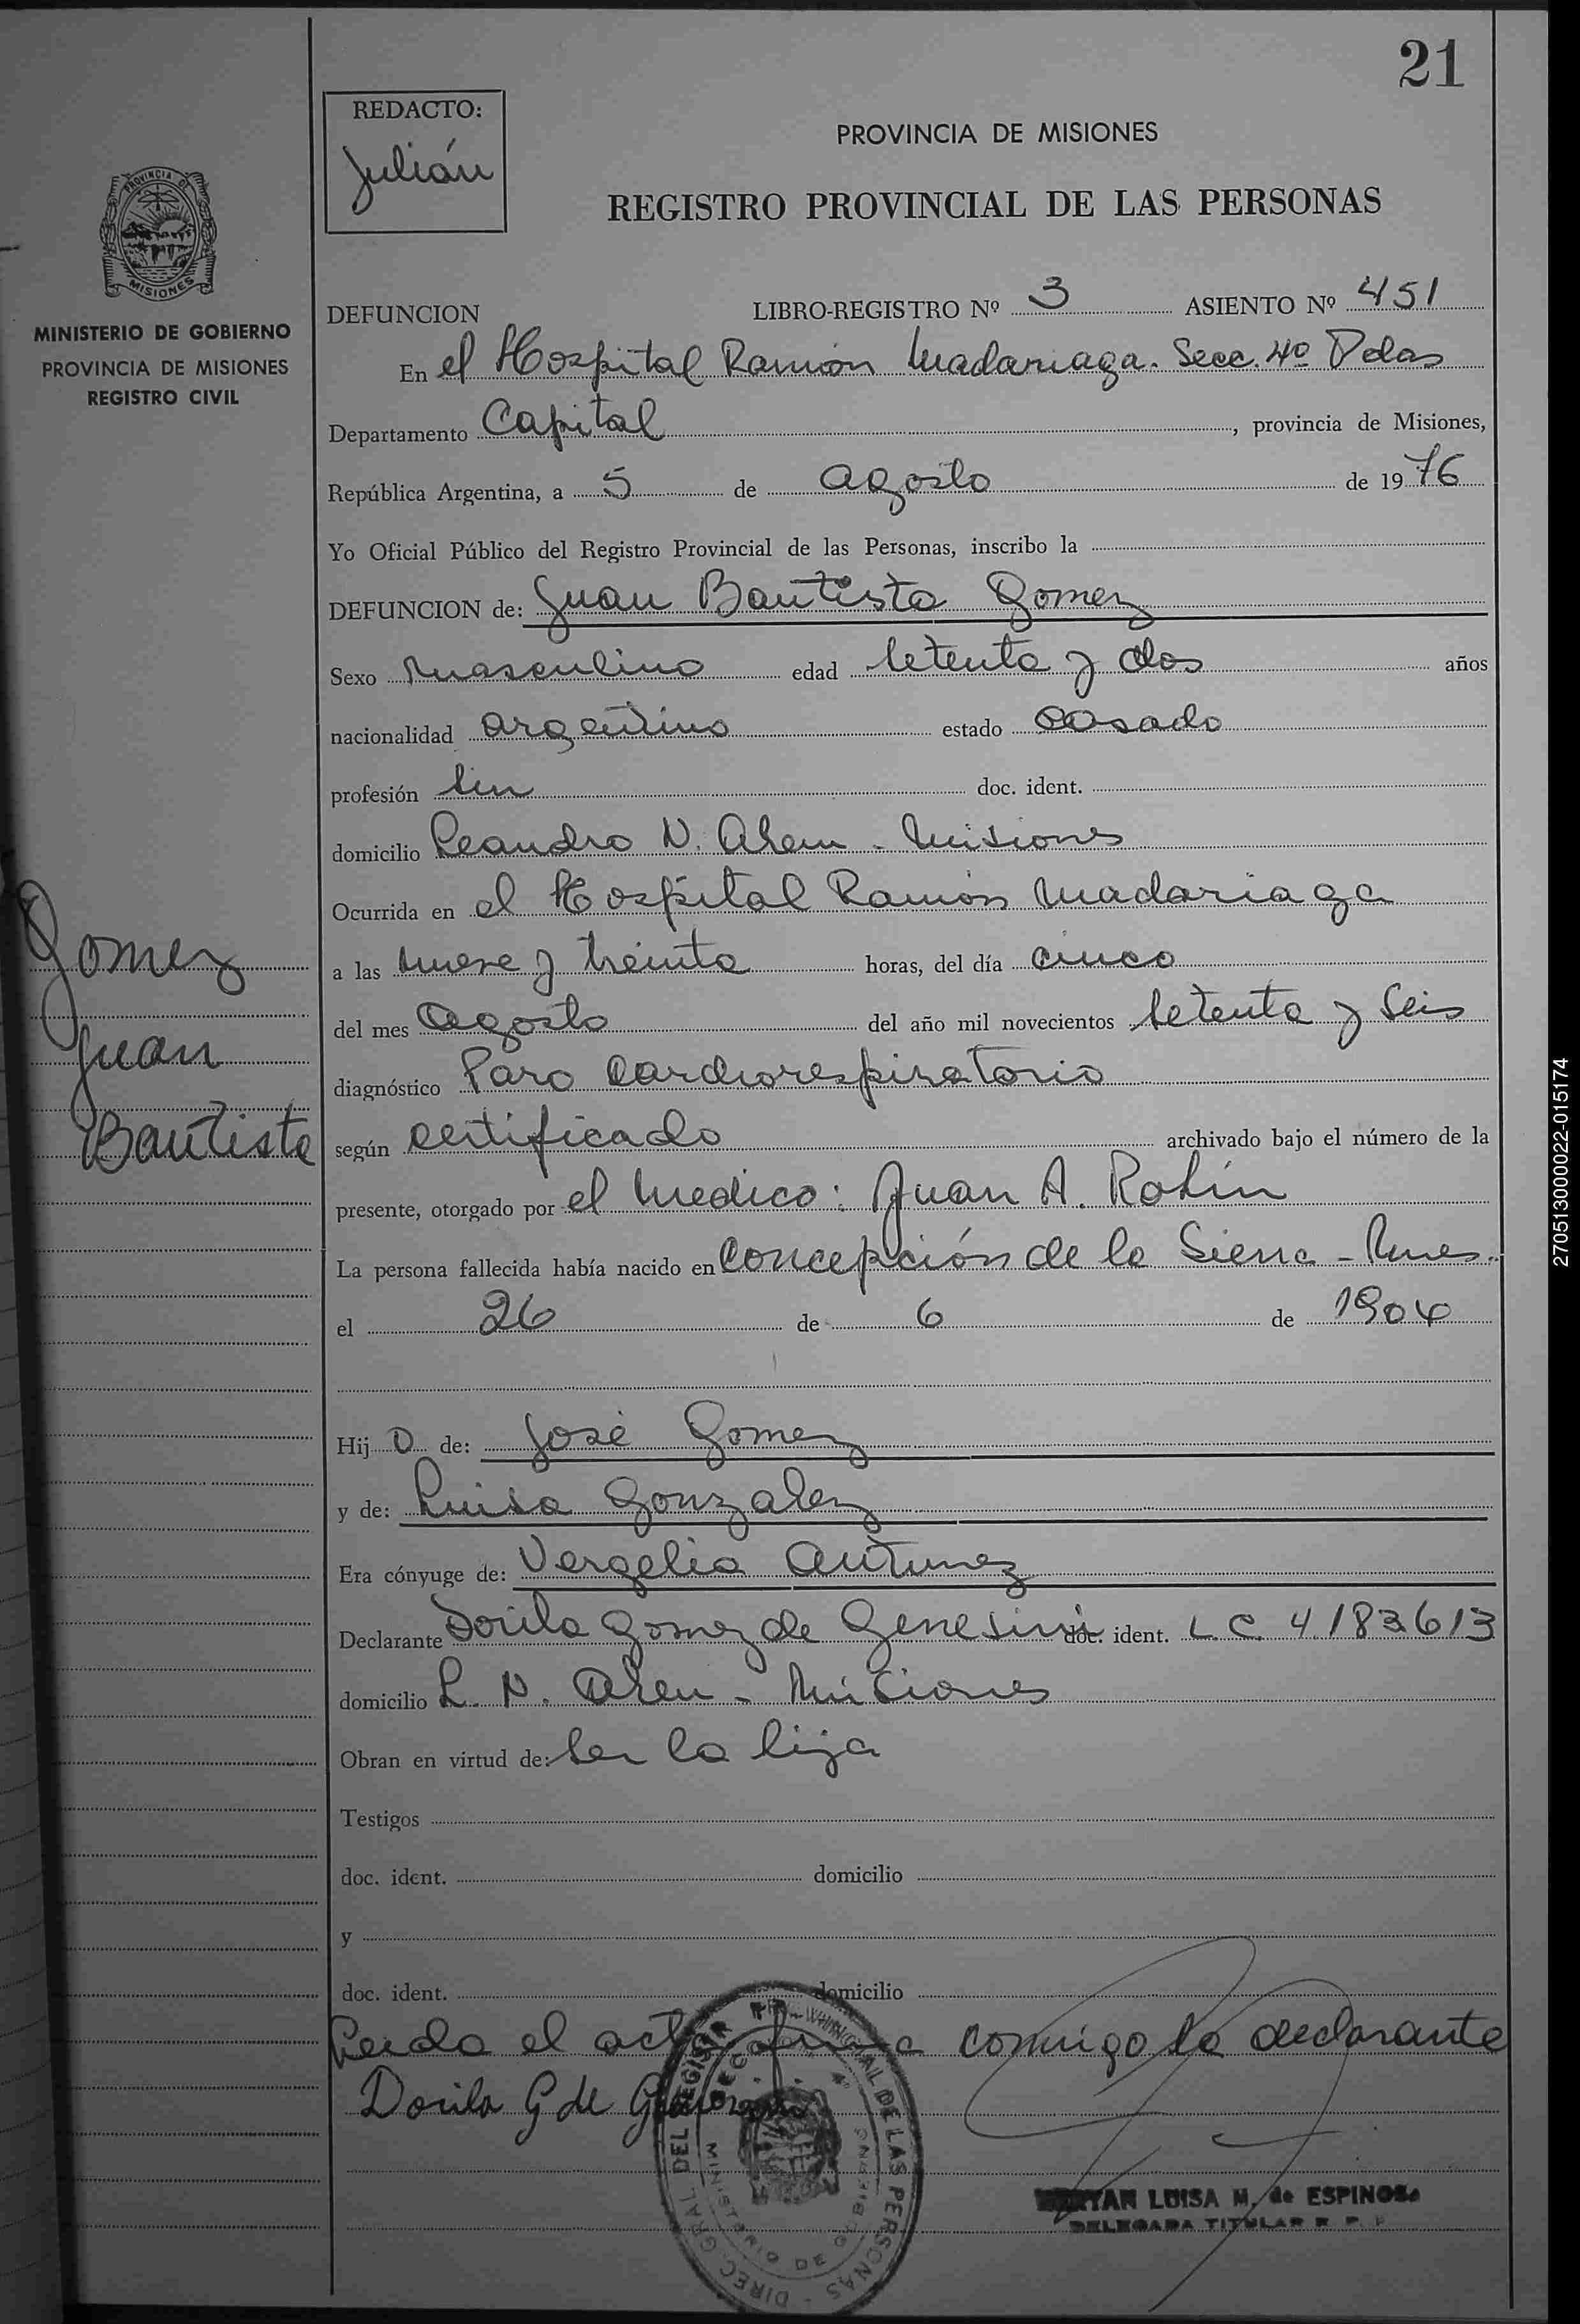 21
REDACTO:
Julián
PROVINCIA DE MISIONES
REGISTRO PROVINCIAL DE LAS PERSONAS
PROVINCIA DE
MISIONES
MINISTERIO DE GOBIERNO
PROVINCIA DE MISIONES
REGISTRO CIVIL
DEFUNCION LIBRO-REGISTRO Nº 3 ASIENTO Nº 451
En el Hospital Ramón Madariaga. Secc. 4º Pdas
Departamento Capital, provincia de Misiones,
República Argentina, a 5 de agosto de 1976
Yo Oficial Público del Registro Provincial de las Personas, inscribo la
DEFUNCION de: Juan Bautista Gomez
Sexo masculino edad setenta y dos años
nacionalidad argentino estado casado
profesión sin doc. ident.
domicilio Leandro N. Alem - Misiones
Ocurrida en el Hospital Ramón Madariaga
a las nueve y treinta horas, del día cinco
del mes agosto del año mil novecientos setenta y seis
diagnóstico Paro Cardiorespiratorio
según certificado archivado bajo el número de la
presente, otorgado por el medico: Juan A. Rolín
La persona fallecida había nacido en Concepción de la Sierra - Mnes.
el 26 de 6 de 1904
Gomez
Juan
Bautista
Hijo de: José Gomez
y de: Luisa Gonzalez
Era cónyuge de: Vergelia Antunez
Declarante Dorila Gomez de Genesini doc. ident. L.C. 4183613
domicilio L. N. Alem - Misiones
Obran en virtud de: Ser la hija
Testigos
doc. ident. domicilio
y
doc. ident. domicilio
Leida el acta firma conmigo la declarante
Dorila G de
DIREC. GRAL. DEL REGISTRO PROVINCIAL DE LAS PERSONAS
MINISTERIO DE GOBIERNO
LUISA M. de ESPINOSA
DELEGADA TITULAR R. P. P.
270513000022-015174